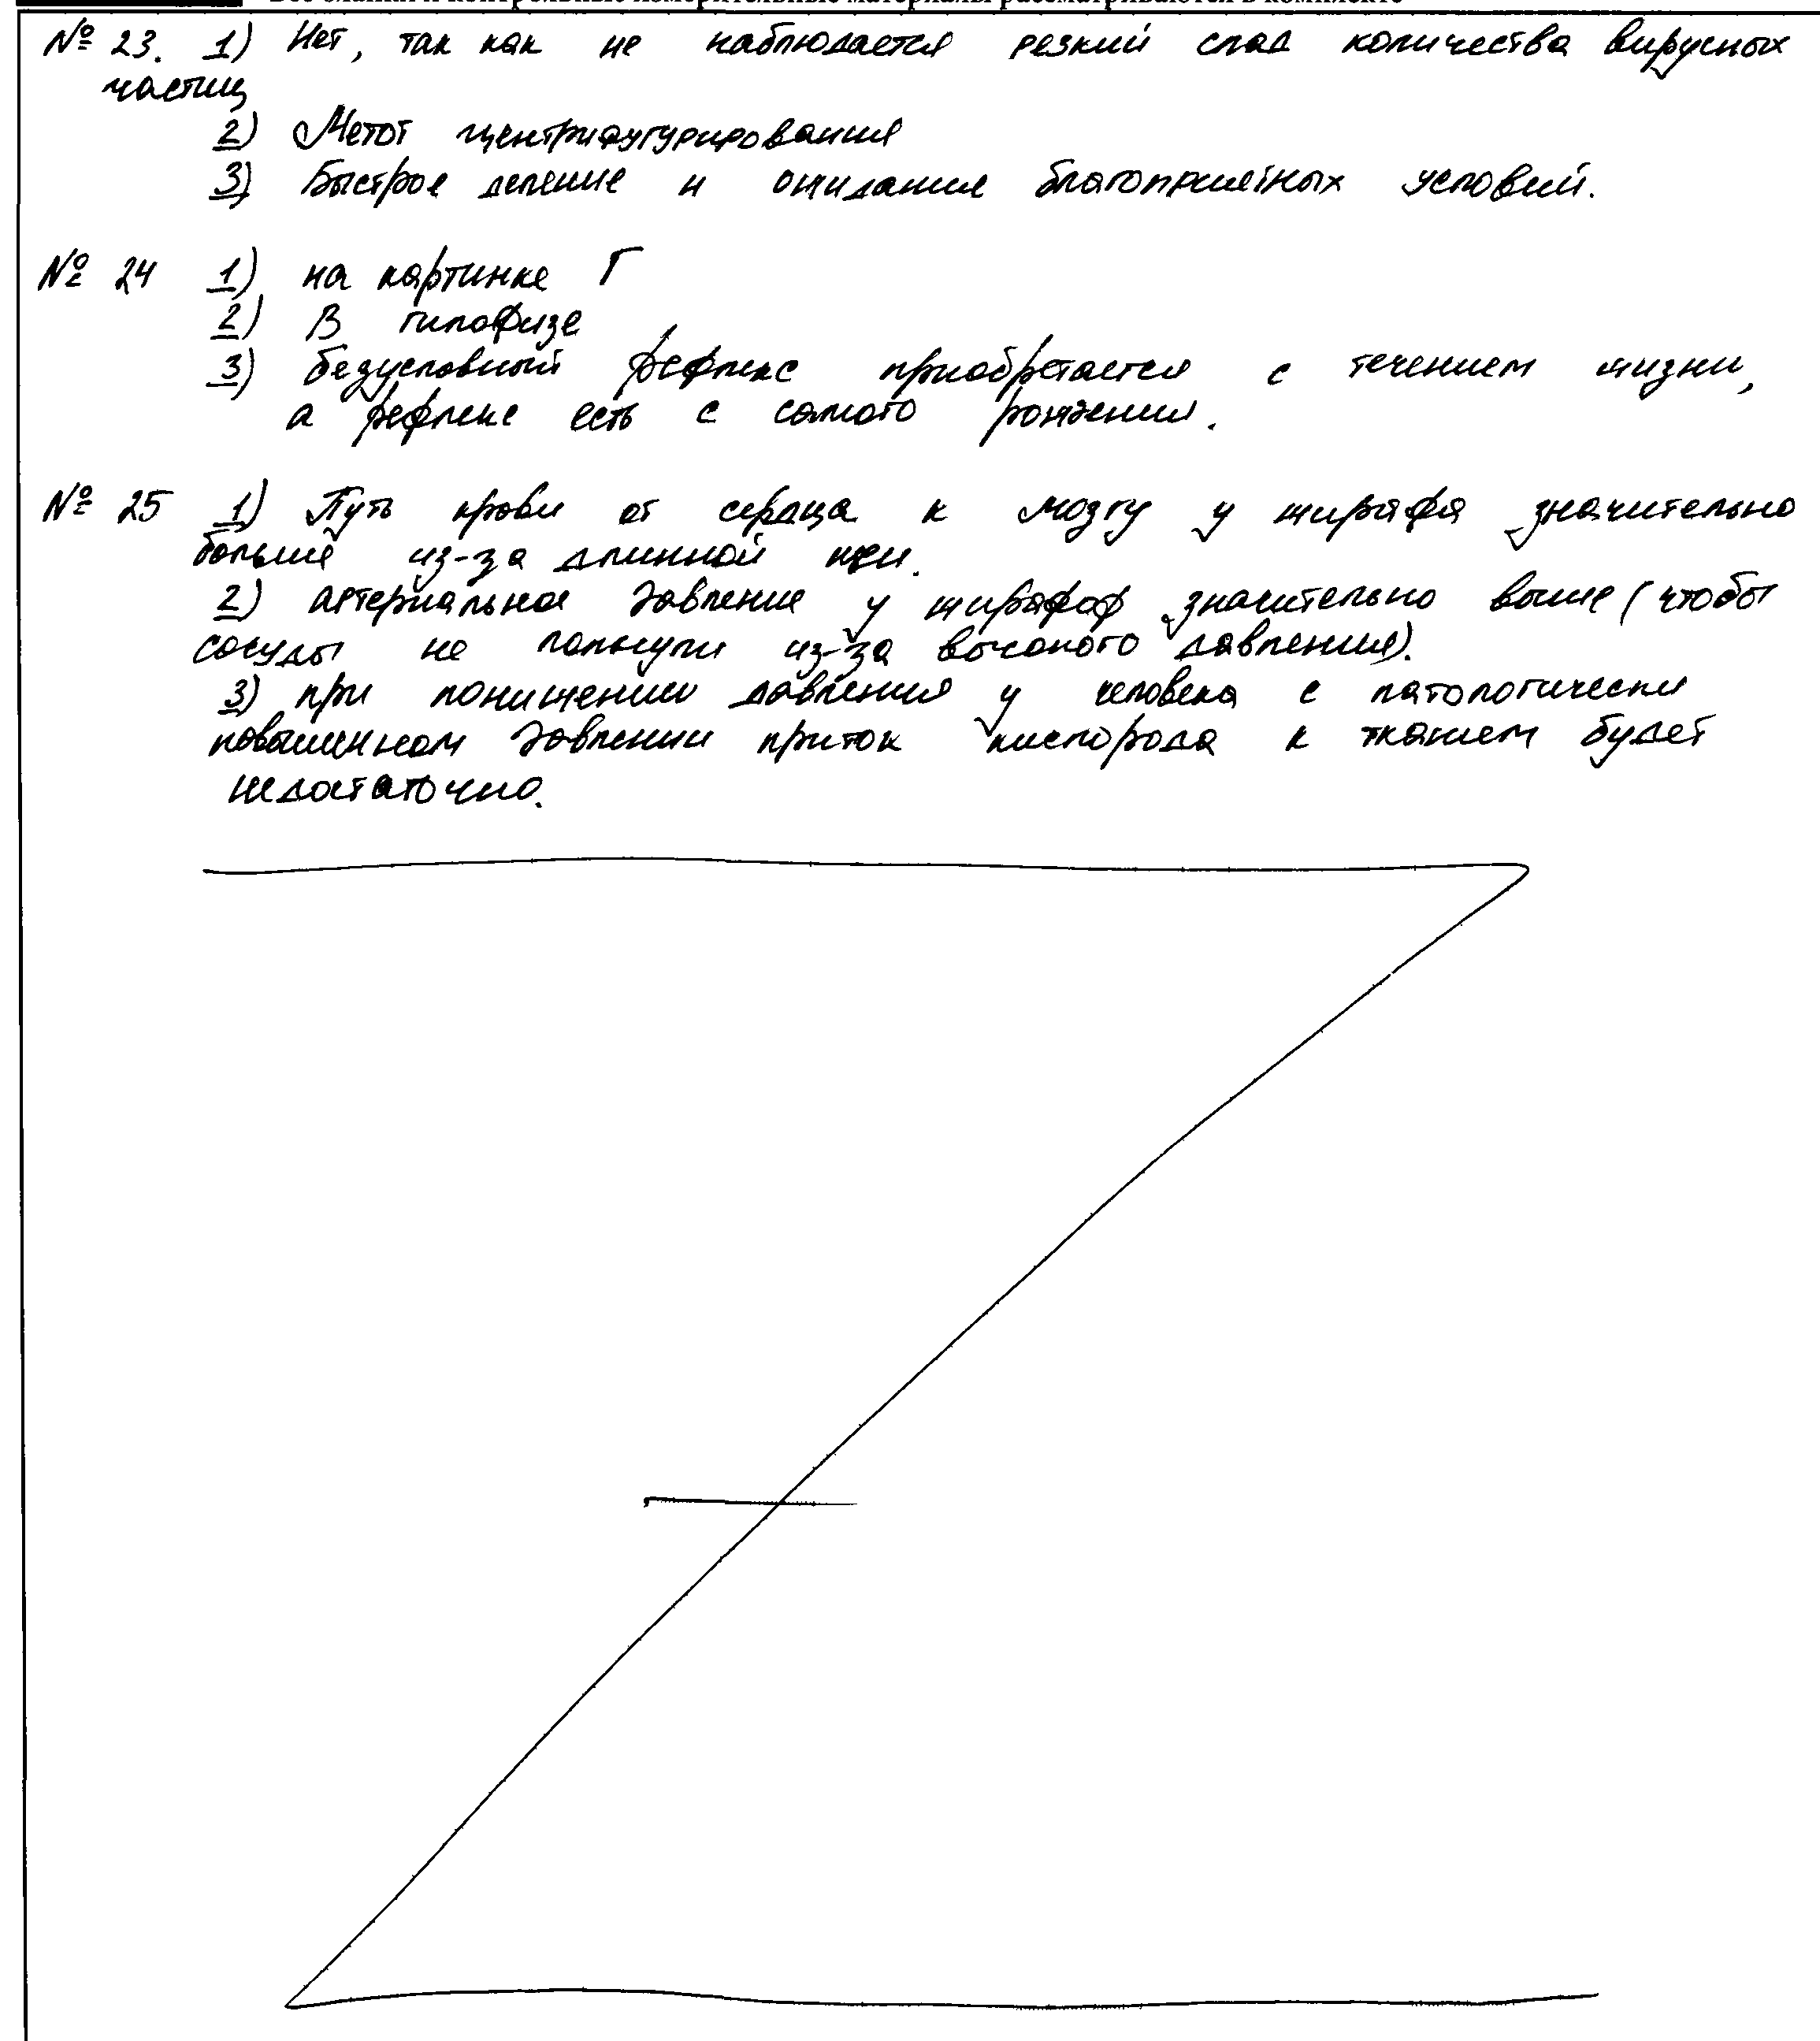 Все бланки и контрольные измерительные материалы рассматриваются в комплекте
№ 23. 1) Нет, так как не наблюдается резкий спад количества вирусных
частиц
2) Метот центрифугурирования
3) Быстрое деление и ожидание благоприятных условий.
№ 24 1) на картинке Г
2) В гипофизе
3) безусловный рефлекс приобретается с течением жизни,
а рефлекс есть с самого рождения.
№ 25 1) Путь крови от сердца к мозгу у жирафа значительно
больше из-за длинной шеи.
2) артериальное давление у жирафоф значительно выше (чтобы
сосуды не лопнули из-за высокого давления).
3) при понижении давления у человека с патологически
повышенном давлении приток кислорода к тканием будет
недостаточно.